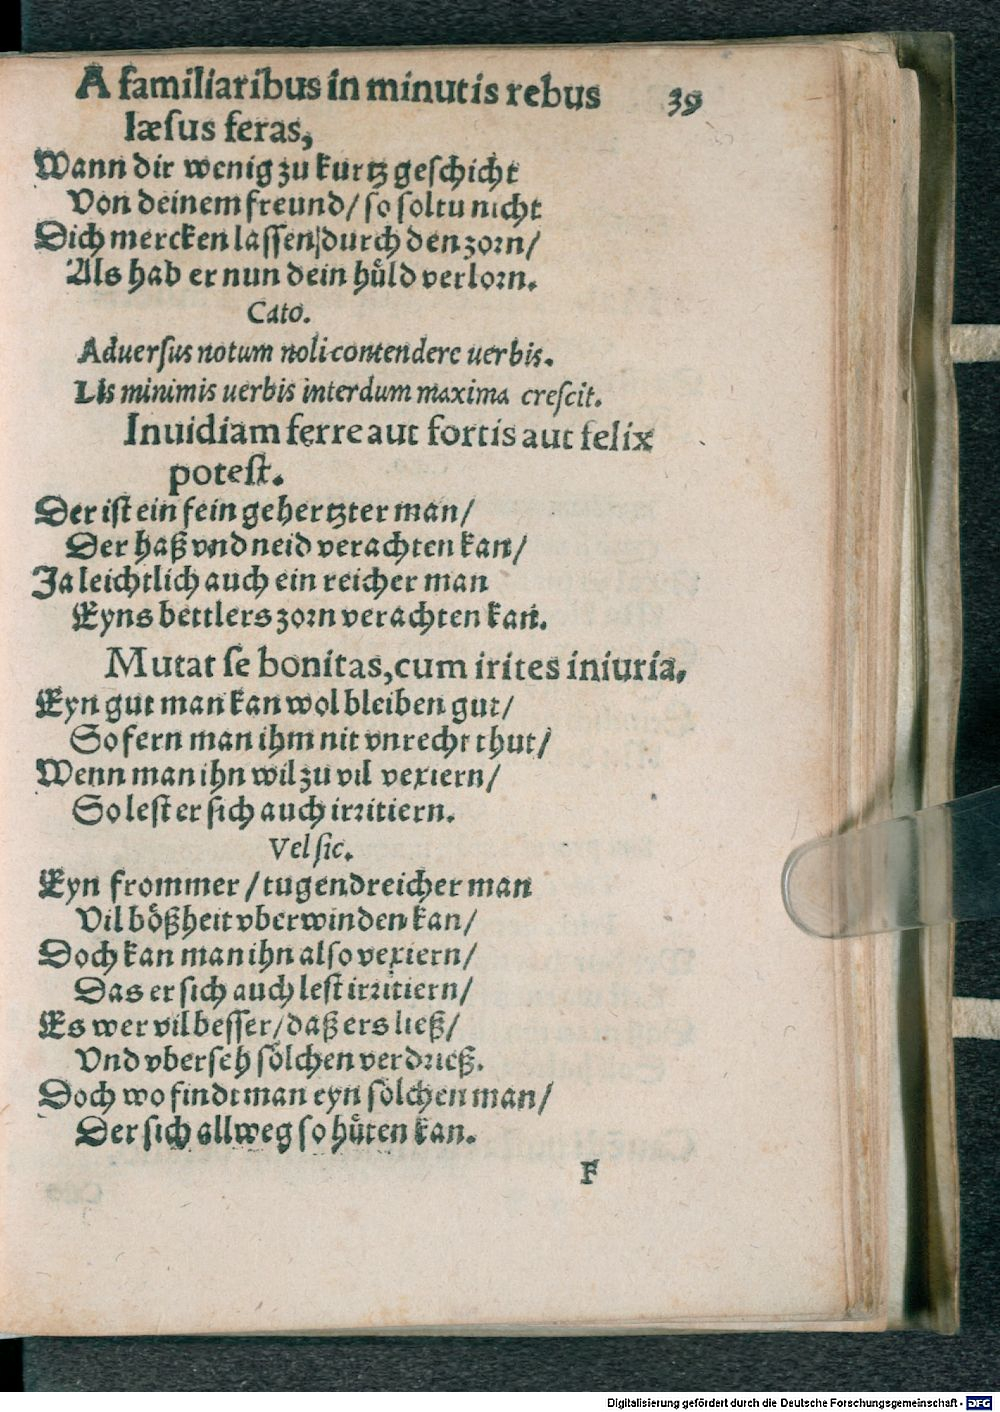 A familiaribus in minutis rebus
39
læsus feras,
Wann dir wenig zu kurtz geschicht
Von deinem freund / so soltu nicht
Dich mercken lassen / durch den zorn /
Als hab er nun dein hůld verlorn.
Cato.
Aduersus notum noli contendere uerbis.
Lis minimis uerbis interdum maxima crescit.
Inuidiam ferre aut fortis aut felix
potest.
Der ist ein fein gehertzter man /
Der haß vnd neid verachten kan /
Ja leichtlich auch ein reicher man
Eyns bettlers zorn verachten kan.
Mutat se bonitas, cum irites iniuria.
Eyn gut man kan wol bleiben gut /
So fern man ihm nit vnrecht thut /
Wenn man ihn wil zu vil vexiern /
So lest er sich auch irritiern.
Vel sic.
Eyn frommer / tugendreicher man
Vil bößheit vberwinden kan /
Doch kan man ihn also vexiern /
Das er sich auch lest irritiern /
Es wer vil besser / daß ers ließ /
Vnd vberseh sölchen verdrieß.
Doch wo findt man eyn sölchen man /
Der sich allweg so hůten kan.
F
Digitalisierung gefördert durch die Deutsche Forschungsgemeinschaft - DFG